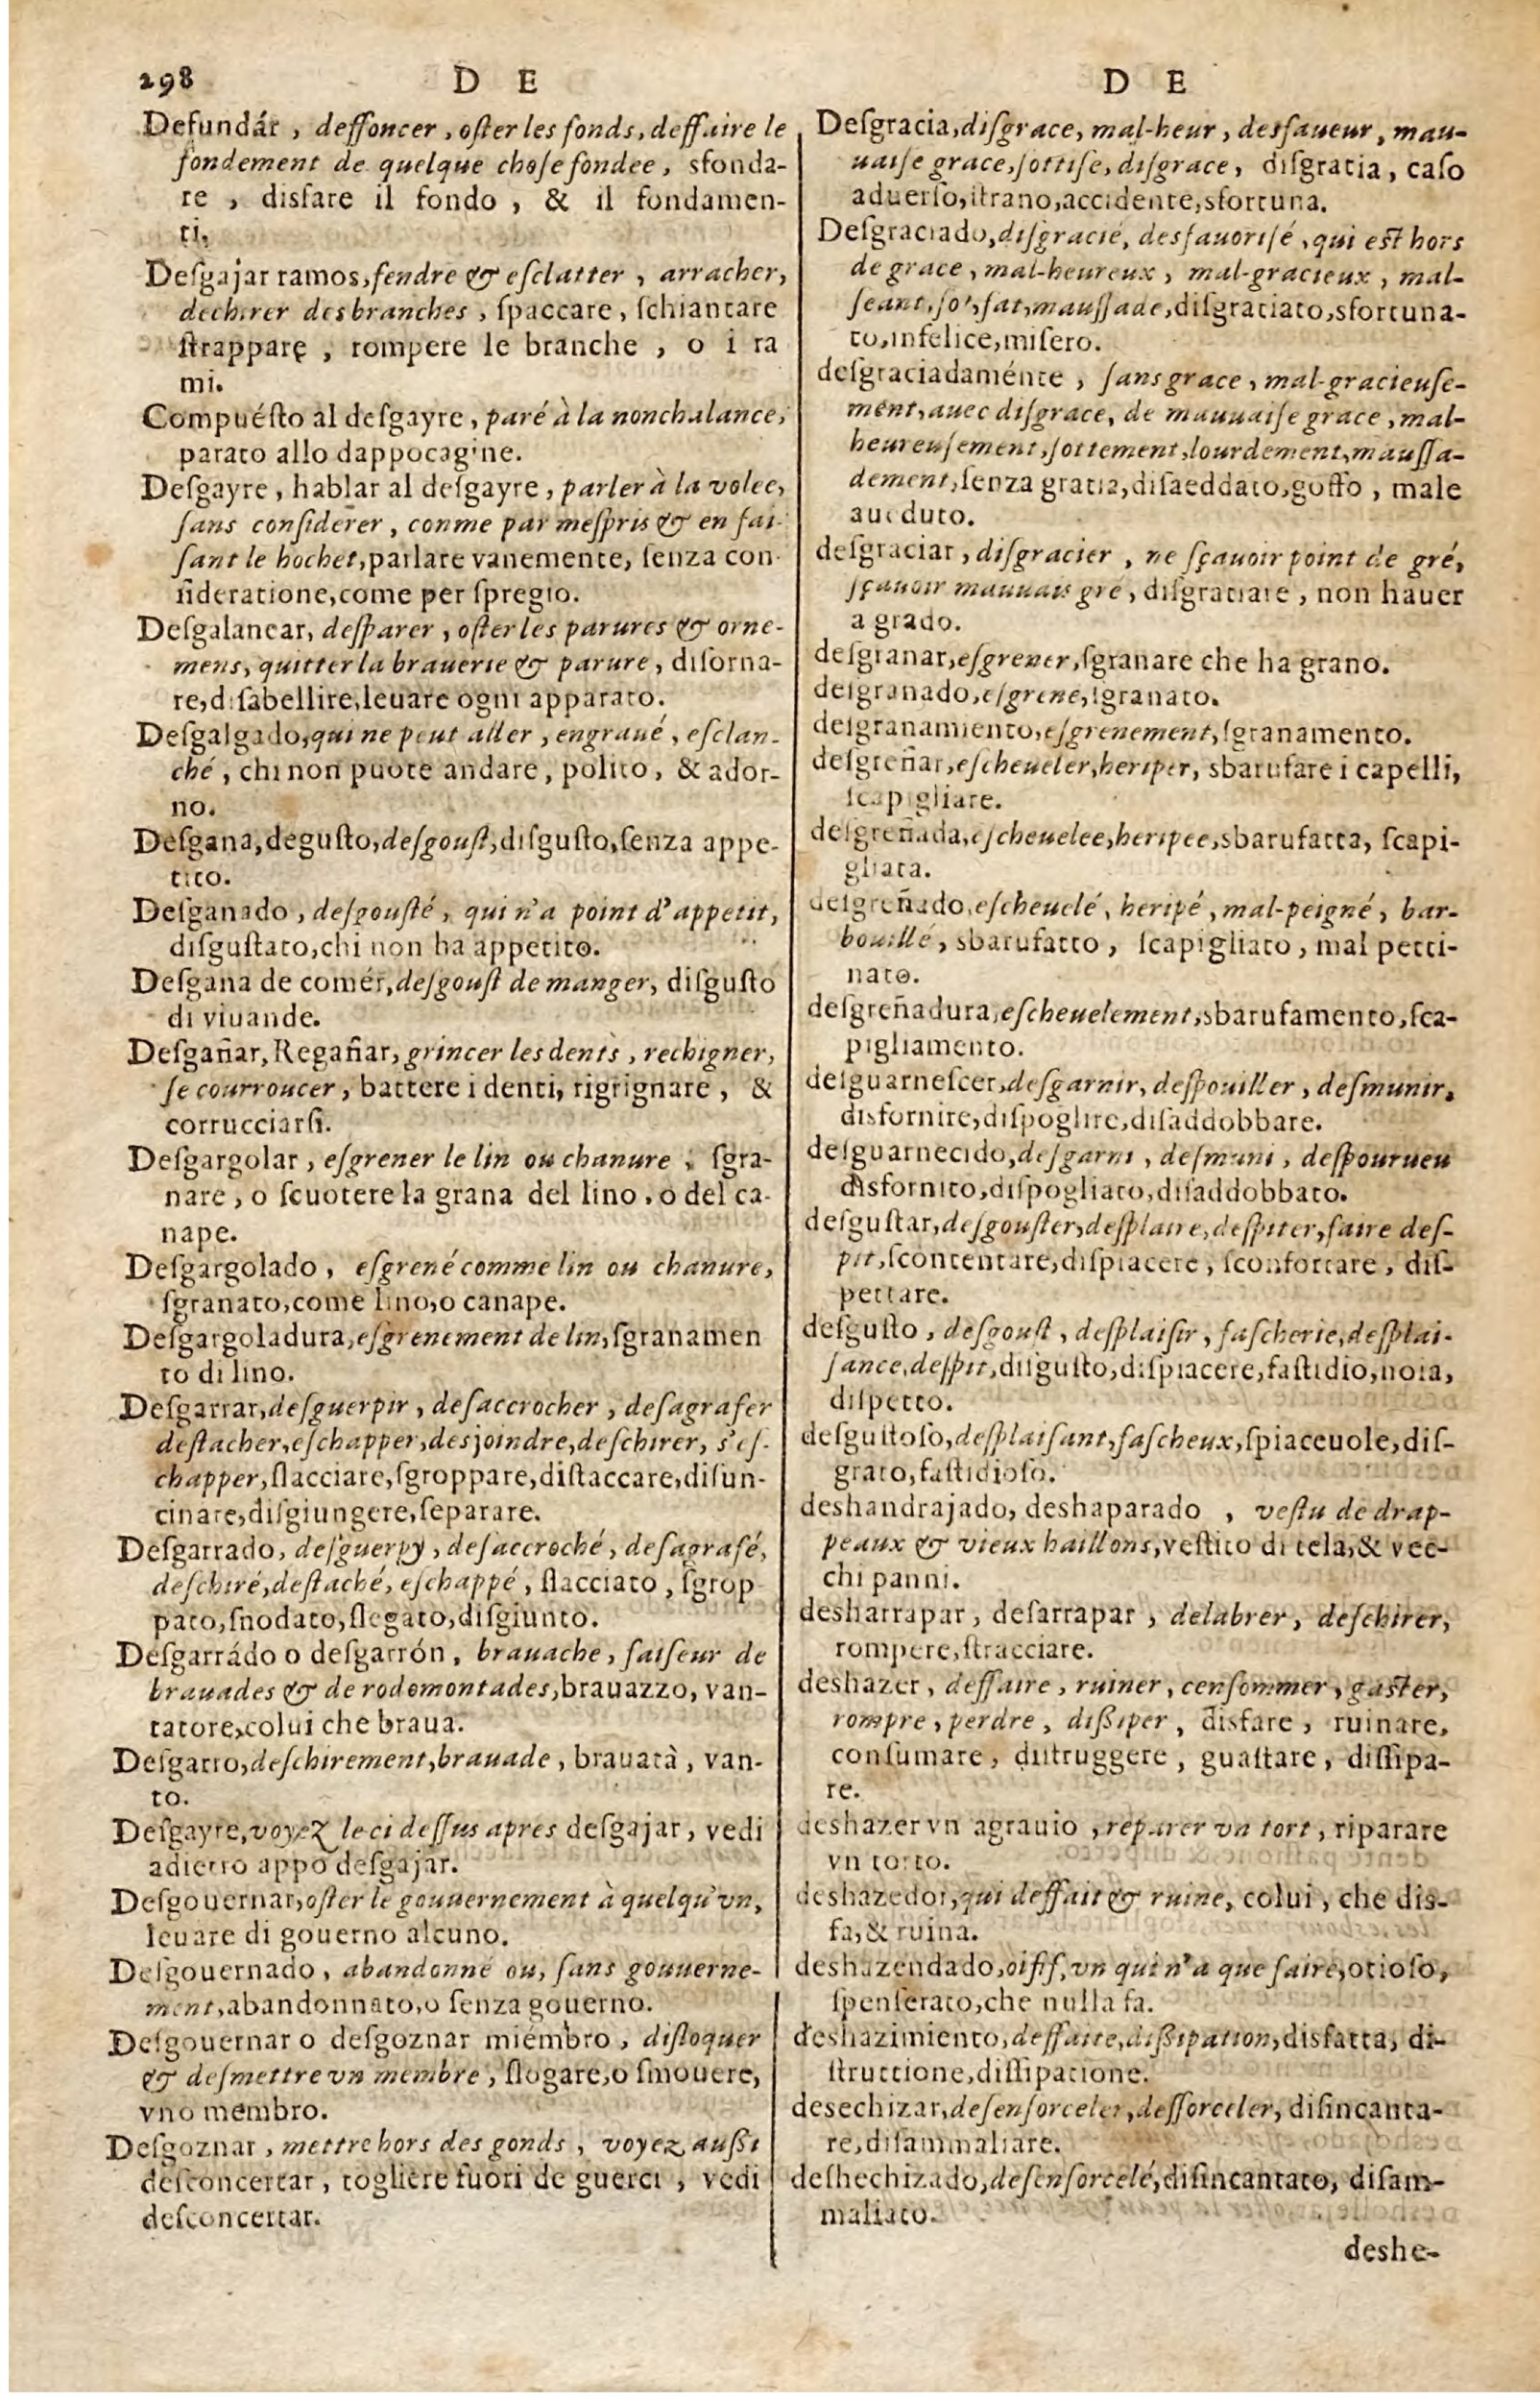 298 D E
Defundár, deffoncer, oſter les fonds, deffaire le
fondement de quelque choſe fondee, sfonda-
re, disfare il fondo, & il fondamen-
ti.
Deſgajar ramos, fendre & eſclatter, arracher,
dechirer des branches, ſpaccare, ſchiantare
ſtrappare, rompere le branche, o i ra
mi.
Compuéſto al deſgayre, paré à la nonchalance,
parato allo dappocagine.
Deſgayre, hablar al deſgayre, parler à la volee,
ſans conſiderer, conme par meſpris & en fai-
ſant le hochet, parlare vanemente, ſenza con-
ſideratione, come per ſpregio.
Deſgalancar, deſparer, oſter les parures & orne-
mens, quitter la brauerie & parure, diſorna-
re, diſabellire, leuare ogni apparato.
Deſgalgado, qui ne peut aller, engraué, eſclan-
ché, chi non puote andare, polito, & ador-
no.
Deſgana, deguſto, deſgouſt, diſguſto, ſenza appe-
tito.
Deſganado, deſgouſté, qui n'a point d'appetit,
diſguſtato, chi non ha appetito.
Deſgana de comér, deſgouſt de manger, diſguſto
di viuande.
Deſgañar, Regañar, grincer les dents, rechigner,
ſe courroucer, battere i denti, rigrignare, &
corrucciarſi.
Deſgargolar, eſgrener le lin ou chanure, ſgra-
nare, o ſcuotere la grana del lino, o del ca-
nape.
Deſgargolado, eſgrené comme lin ou chanure,
ſgranato, come lino, o canape.
Deſgargoladura, eſgrenement de lin, ſgranamen
to di lino.
Deſgarrar, deſguerpir, deſaccrocher, deſagrafer
deſtacher, eſchapper, desjoindre, deſchirer, s'eſ-
chapper, ſlacciare, ſgroppare, diſtaccare, diſun-
cinare, diſgiungere, ſeparare.
Deſgarrado, deſguerpy, deſaccroché, deſagrafé,
deſchiré, deſtaché, eſchappé, ſlacciato, ſgrop
pato, ſnodato, ſlegato, diſgiunto.
Deſgarrádo o deſgarrón, brauache, faiſeur de
brauades & de rodomontades, brauazzo, van-
tatore, colui che braua.
Deſgarro, deſchirement, brauade, brauatà, van-
to.
Deſgayre, voyez le ci deſſus apres deſgajar, vedi
adietro appo deſgajar.
Deſgouernar, oſter le gouuernement à quelqu'vn,
leuare di gouerno alcuno.
Deſgouernado, abandonné ou, ſans gouuerne-
ment, abandonnato, o ſenza gouerno.
Deſgouernar o deſgoznar miémbro, diſloquer
& deſmettre vn membre, ſlogare, o ſmouere,
vno membro.
Deſgoznar, mettre hors des gonds, voyez außi
deſconcertar, togliere fuori de guerci, vedi
deſconcertar.
D E
Deſgracia, diſgrace, mal-heur, desfaueur, mau-
uaiſe grace, ſottiſe, diſgrace, diſgratia, caſo
aduerſo, ſtrano, accidente, sfortuna.
Deſgraciado, diſgracié, desfauoriſé, qui eſt hors
de grace, mal-heureux, mal-gracieux, mal-
ſeant, ſot, fat, mauſſade, diſgratiato, sfortuna-
to, infelice, miſero.
deſgraciadaménte, ſans grace, mal-gracieuſe-
ment, auec diſgrace, de mauuaiſe grace, mal-
heureuſement, ſottement, lourdement, mauſſa-
dement, ſenza gratia, diſaeddato, goffo, male
aueduto.
deſgraciar, diſgracier, ne ſçauoir point de gré,
ſçauoir mauuais gré, diſgratiare, non hauer
a grado.
deſgranar, eſgrener, ſgranare che ha grano.
deſgranado, eſgrené, ſgranato.
deſgranamiento, eſgrenement, ſgranamento.
deſgreñar, eſcheueler, heriper, sbarufare i capelli,
ſcapigliare.
deſgreñada, eſcheuelee, heripee, sbarufatta, ſcapi-
gliata.
deſgreñado, eſcheuelé, heripé, mal-peigné, bar-
bouillé, sbarufatto, ſcapigliato, mal petti-
nato.
deſgreñadura, eſcheuelement, sbarufamento, ſca-
pigliamento.
deſguarneſcer, deſgarnir, deſpouiller, deſmunir,
disfornire, diſpoglire, diſaddobbare.
deſguarnecido, deſgarni, deſmuni, deſpourueu
disfornito, diſpogliato, diſaddobbato.
deſguſtar, deſgouſter, deſplaire, deſpiter, faire deſ-
pit, ſcontentare, diſpiacere, ſconfortare, diſ-
pettare.
deſguſto, deſgouſt, deſplaiſir, faſcherie, deſplai-
ſance, deſpit, diſguſto, diſpiacere, faſtidio, noia,
diſpetto.
deſguſtoſo, deſplaiſant, faſcheux, ſpiaceuole, diſ-
grato, faſtidioſo.
deshandrajado, deshaparado, veſtu de drap-
peaux & vieux haillons, veſtito di tela, & vec-
chi panni.
desharrapar, deſarrapar, delabrer, deſchirer,
rompere, ſtracciare.
deshazer, deffaire, ruiner, conſommer, gaſter,
rompre, perdre, dißiper, disfare, ruinare,
conſumare, diſtruggere, guaſtare, diſſipa-
re.
deshazer vn agrauio, reparer vn tort, riparare
vn torto.
deshazedor, qui deffait & ruine, colui, che dis-
fa, & ruina.
deshazendado, oiſif, vn qui n'a que faire, otioſo,
ſpenſerato, che nulla fa.
deshazimiento, deffaite, dißipation, disfatta, di-
ſtruttione, diſſipatione.
desechizar, deſenſorceler, deſſorceler, diſincanta-
re, diſammaliare.
deshechizado, deſenſorcelé, diſincantato, diſam-
maliato.
deshe-